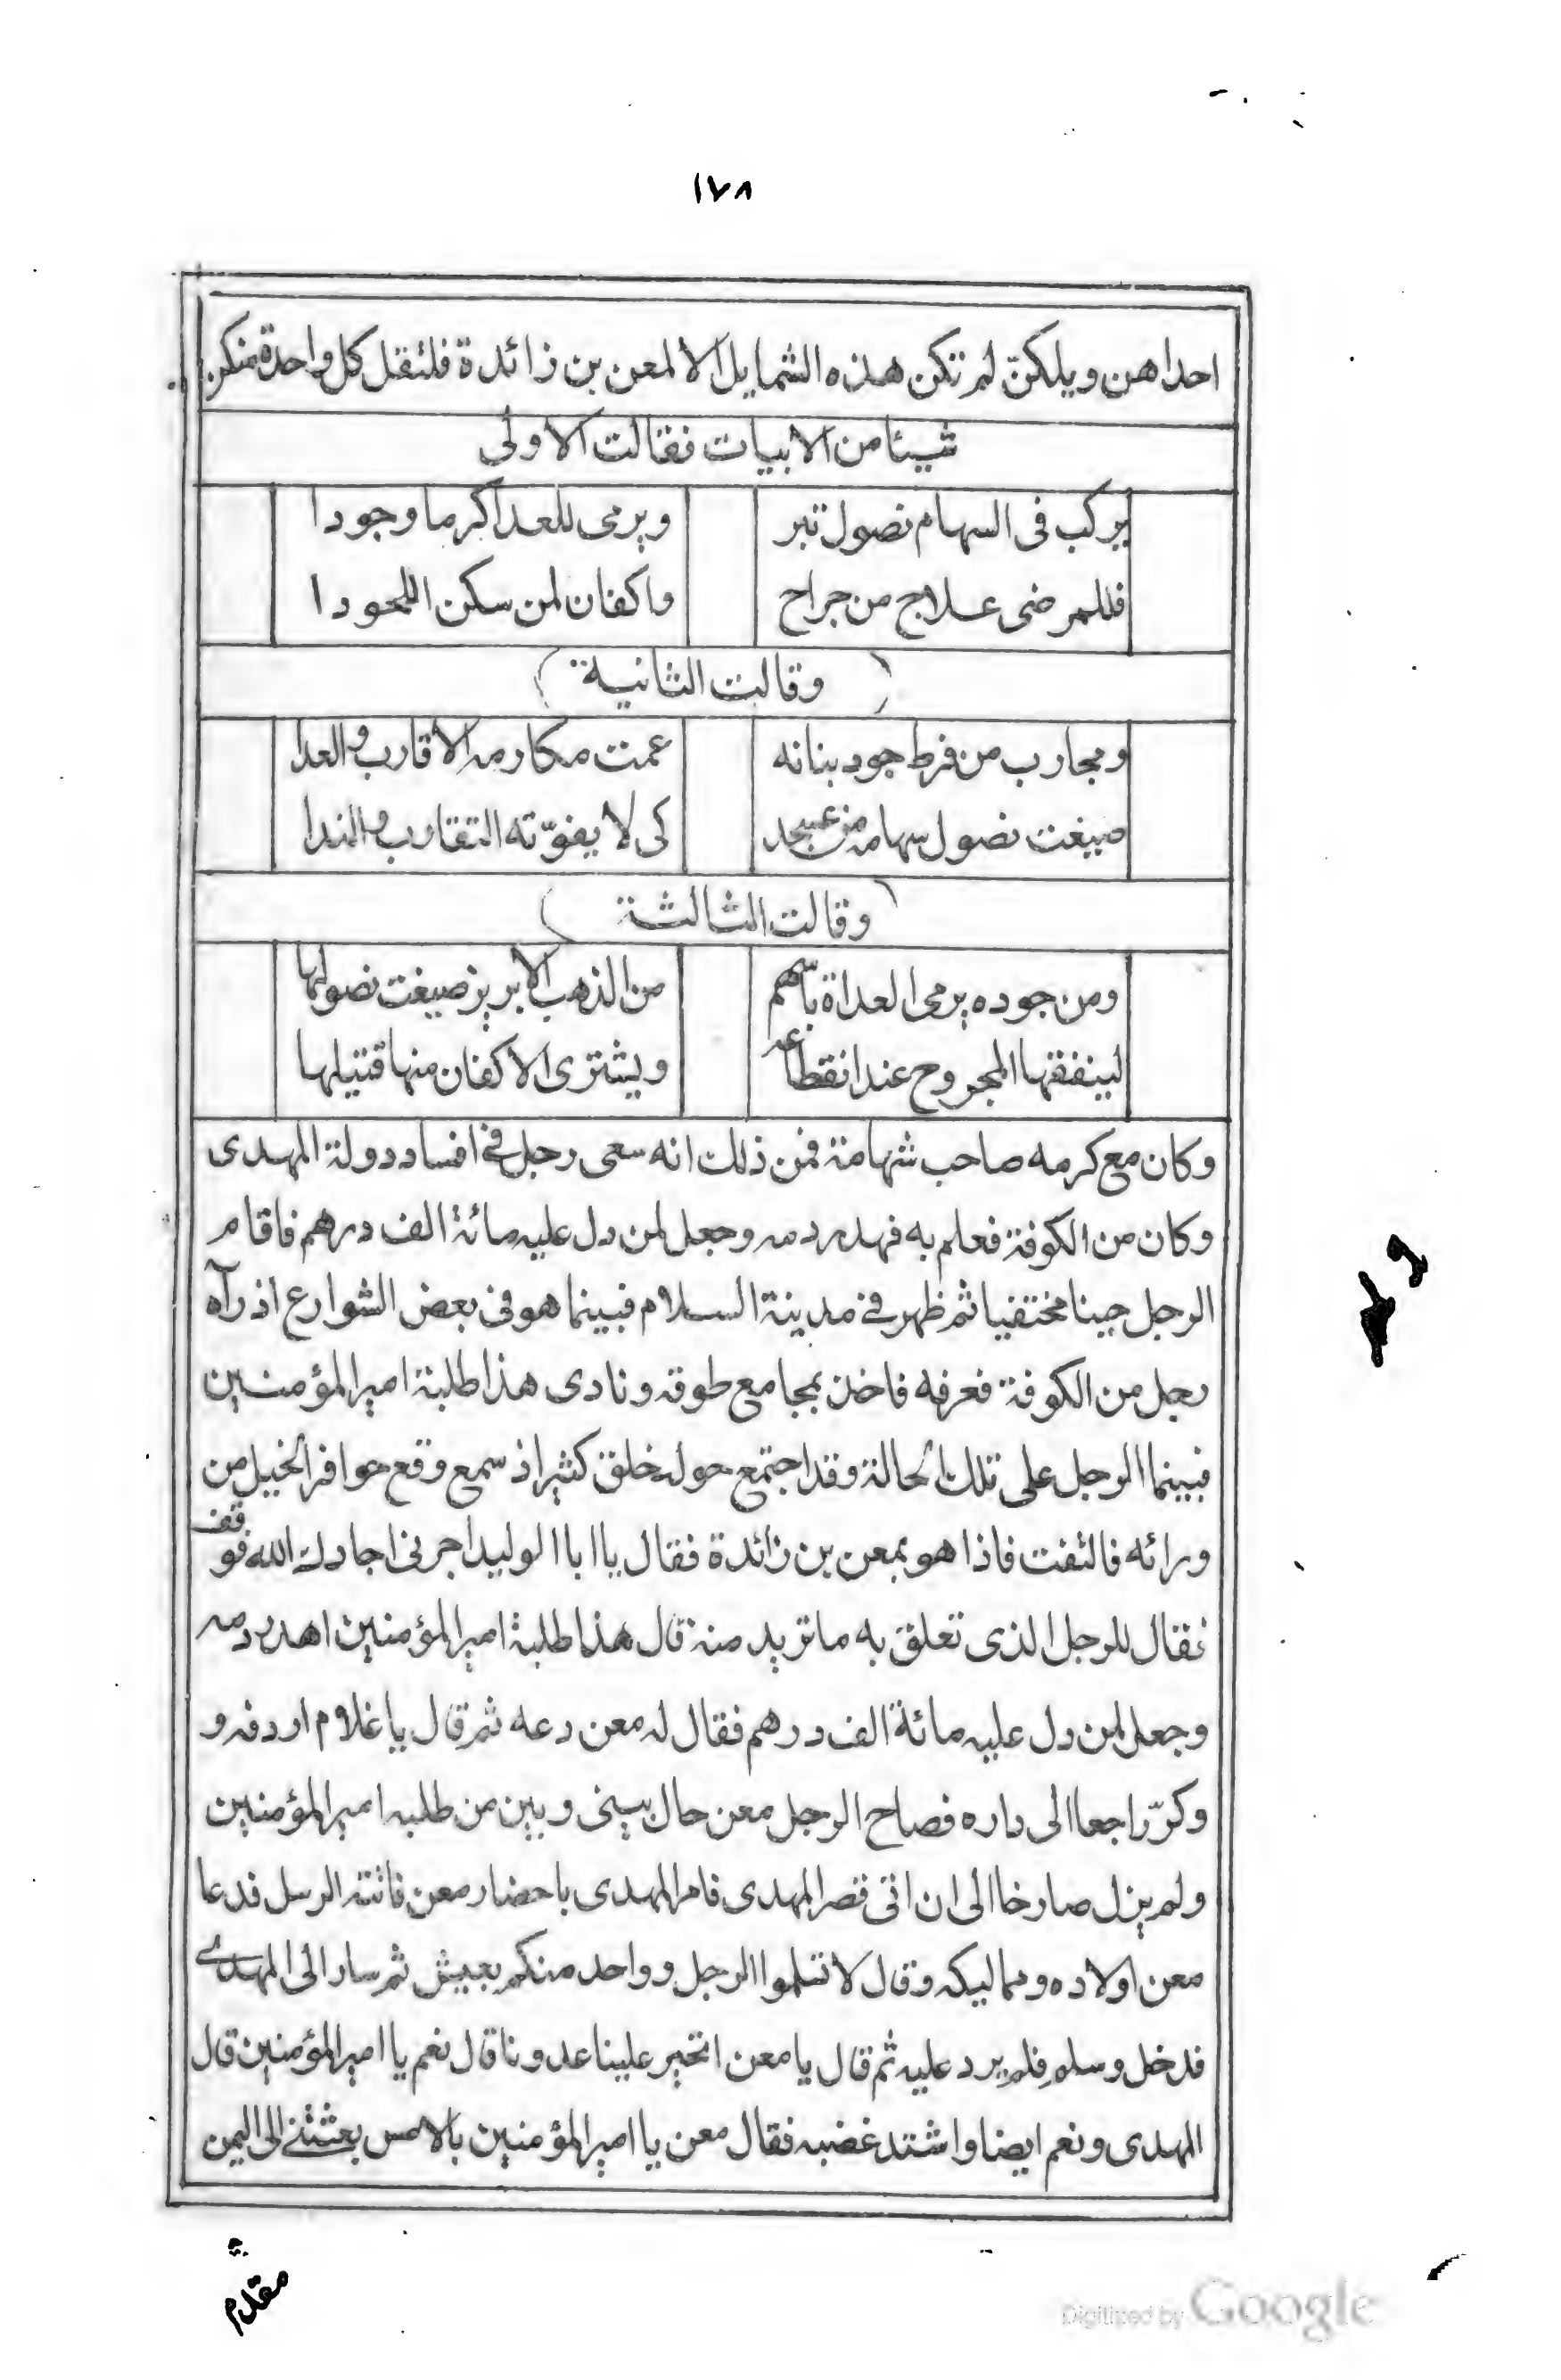 ١٧٨
احداهن ويلكنّ لم تكن هذه الشمايل الا لمعن بن زائدة فلتقل كل واحدة منكن
شيئا من الابيات فقالت الاولى
يركب فى السهام نصول تبر
ويرمى للعدا كرما وجودا
فللمرضى علاج من جراح
واكفان لمن سكن اللحودا
(وقالت الثانية)
ومحارب من فرط جود بنانه
عمت مكارمه الاقارب والعدا
صيغت نصول سهامه من عسجد
كى لا يفوّته التقارب والندا
(وقالت الثالثة)
ومن جوده يرمى العداة باسهم
من الذهب الابريز صيغت نصولها
لينفقها المجروح عند انقطاعه
ويشترى الاكفان منها قتيلها
وكان مع كرمه صاحب شهامة فمن ذلك انه سعى رجل فى افساد دولة المهدى
وكان من الكوفة فعلم به فهدر دمه وجعل لمن دل عليه مائة الف درهم فاقام
الرجل حينا مختفيا ثم ظهر فى مدينة السلام فبينما هو فى بعض الشوارع اذ رآه
رجل من الكوفة فعرفه فاخذ بمجامع طوقه ونادى هذا طلبة امير المؤمنين
فبينما الرجل على تلك الحالة وقد اجتمع حوله خلق كثير اذ سمع وقع حوافر الخيل من
ورائه فالتفت فاذا هو بمعن بن زائدة فقال يا ابا الوليد اجرنى اجارك الله فوقف
فقال للرجل الذى تعلق به ما تريد منه قال هذا طلبة امير المؤمنين اهدر دمه
وجعل لمن دل عليه مائة الف درهم فقال له معن دعه ثم قال يا غلام اردفه و
وكرّ راجعا الى داره فصاح الرجل معن حال بينى وبين من طلبه امير المؤمنين
ولم يزل صارخا الى ان اتى قصر المهدى فامر المهدى باحضار معن فاتته الرسل فدعا
معن اولاده ومماليكه وقال لا تسلموا الرجل وواحد منكم يعيش ثم سار الى المهدى
فدخل وسلم فلم يرد عليه ثم قال يا معن اتجير علينا عدونا قال نعم يا امير المؤمنين قال
المهدى ونعم ايضا واشتد غضبه فقال معن يا امير المؤمنين بالامس بعثتنى الى اليمن
Digitized by Google